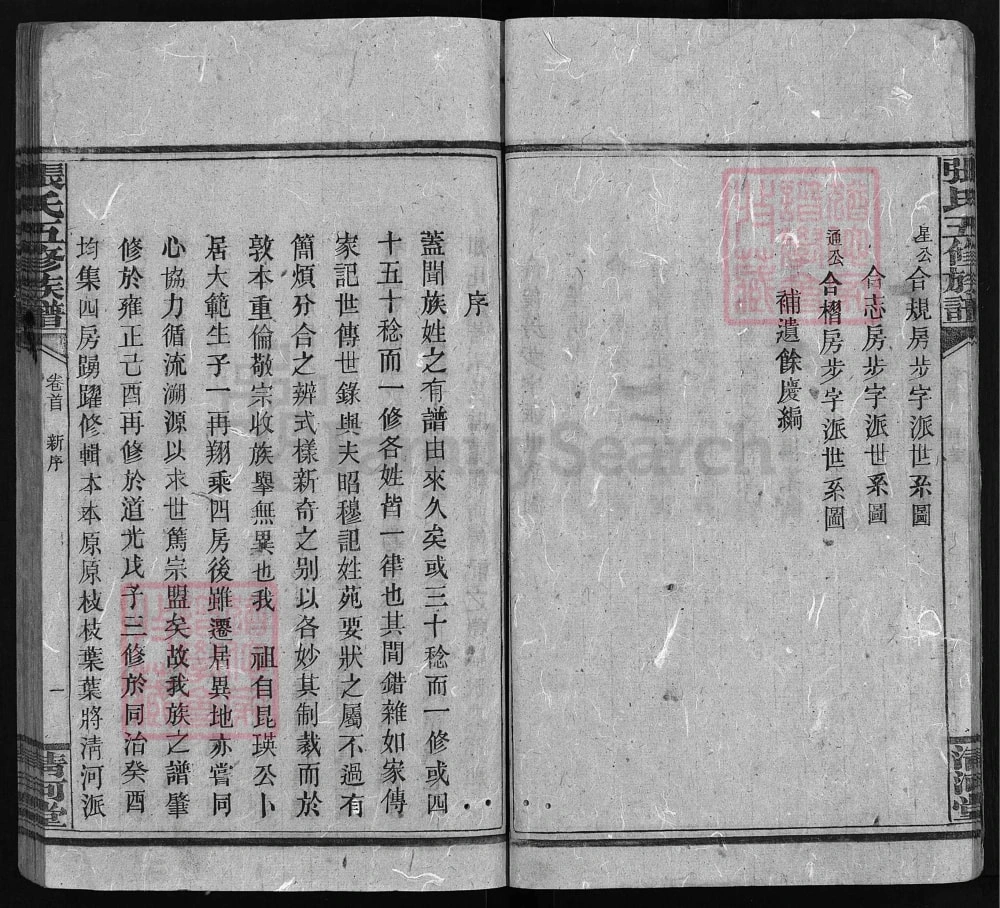 張氏五修族譜
星公合規房步字派世系圖
合志房步字派世系圖
通公合榴房步字派世系圖
補遺餘慶編
清河堂
序
蓋聞族姓之有譜由來久矣或三十稔而一修或四
十五十稔而一修各姓皆一律也其間錯雜如家傳
家記世傳世錄與夫昭穆記姓苑要狀之屬不過有
簡煩分合之辨式樣新奇之别以各妙其制裁而於
敦本重倫敬宗收族舉無異也我 祖自昆瑛公卜
居大範生子一再翔乘四房後雖遷居異地亦嘗同
心協力循流溯源以求世篤宗盟矣故我族之譜肇
修於雍正己酉再修於道光戊子三修於同治癸酉
均集四房踴躍修輯本本原原枝枝葉葉將淸河派
張氏五修族譜
卷首 新序
一
清河堂
FamilySearch